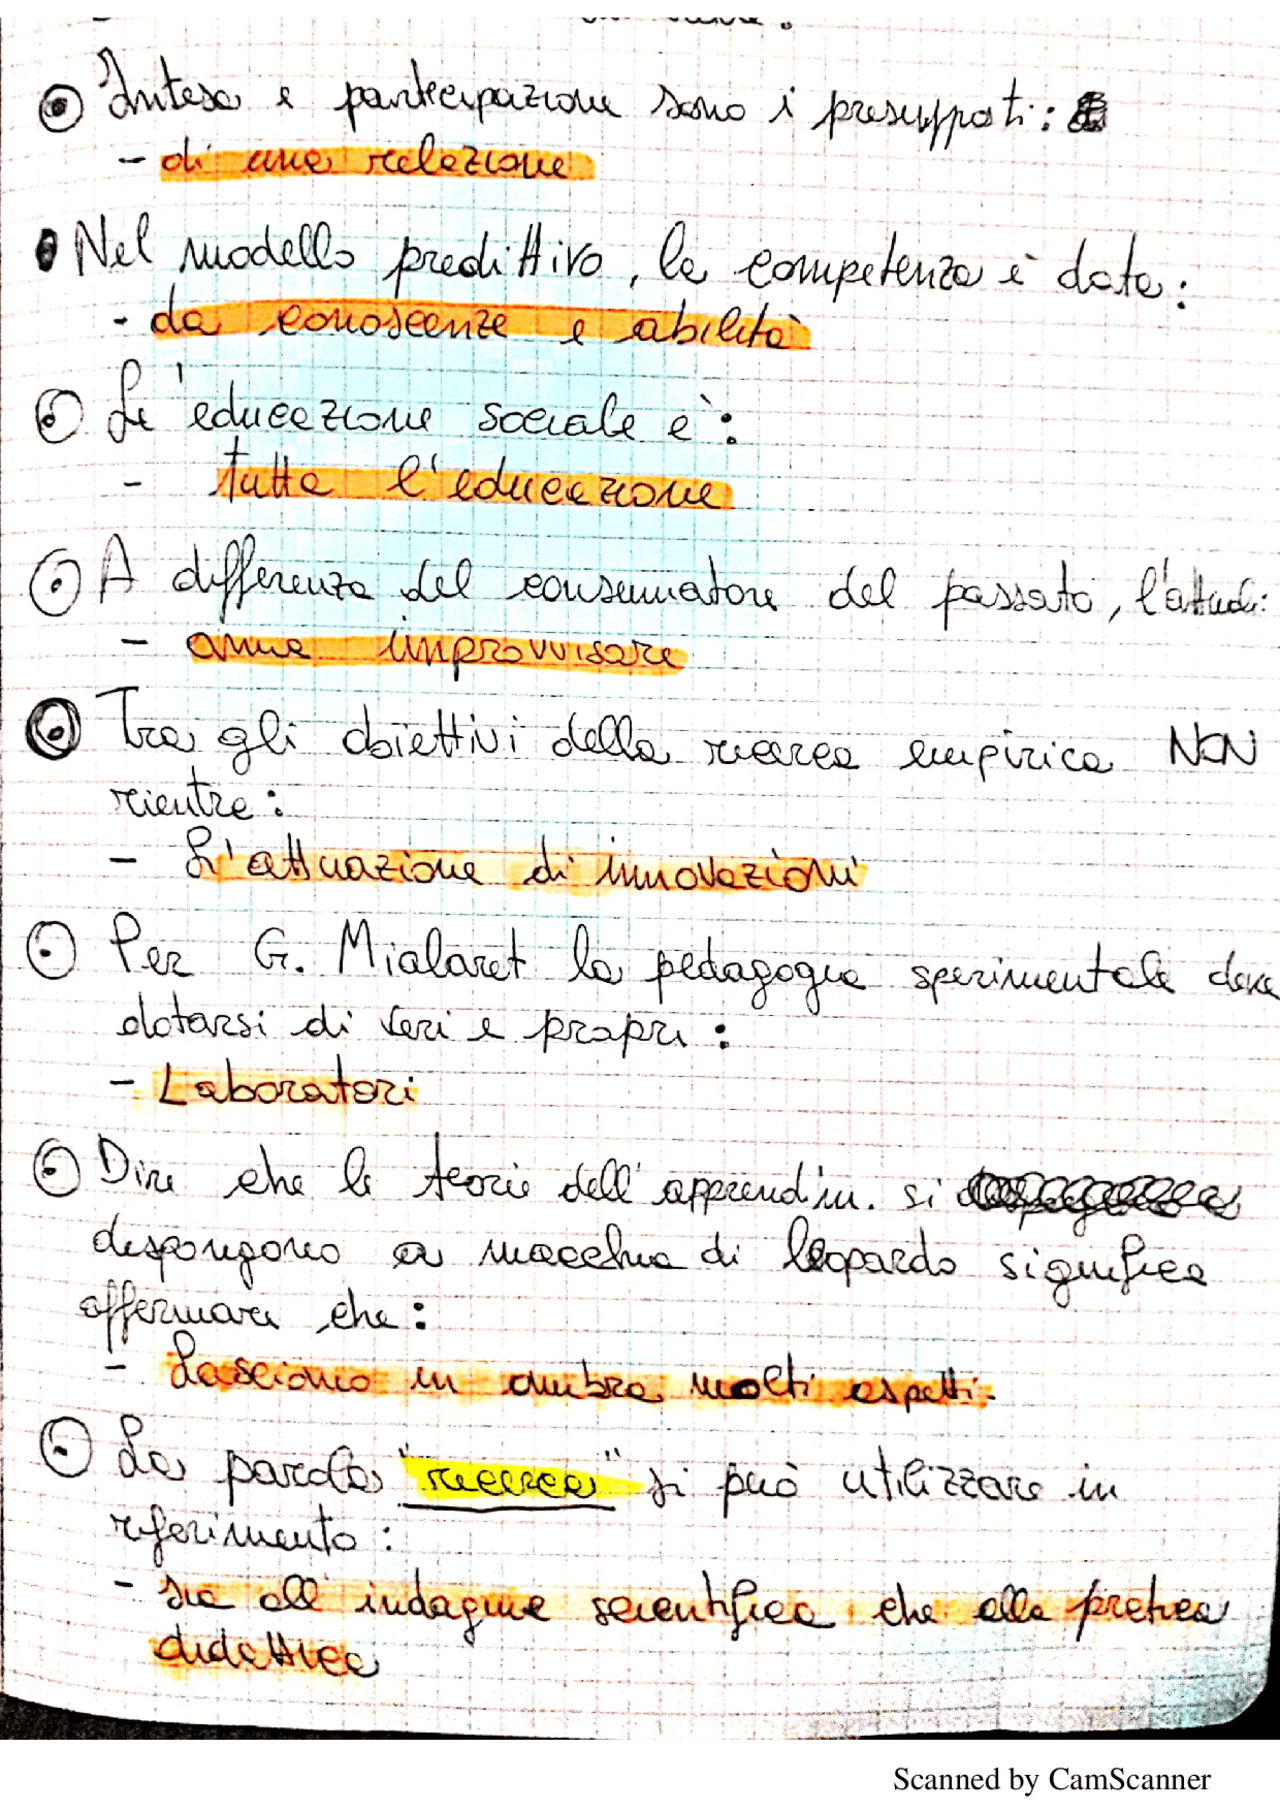 Intesa e partecipazione sono i presupposti:
- di una relazione
Nel modello predittivo, la competenza è data:
- da conoscenze e abilità
L'educazione sociale è:
- tutta l'educazione
A differenza del consumatore del passato, l'attuale:
- ama improvvisare
Tra gli obiettivi della ricerca empirica NON
rientra:
- L'attuazione di innovazioni
Per G. Mialaret la pedagogia sperimentale deve
dotarsi di veri e propri:
- Laboratori
Dire che le teorie dell'apprendim. si
dispongono a macchia di leopardo significa
affermare che:
- Lasciano in ombra molti aspetti.
La parola "ricerca" si può utilizzare in
riferimento:
- sia all'indagine scientifica che alla pratica
didattica
Scanned by CamScanner